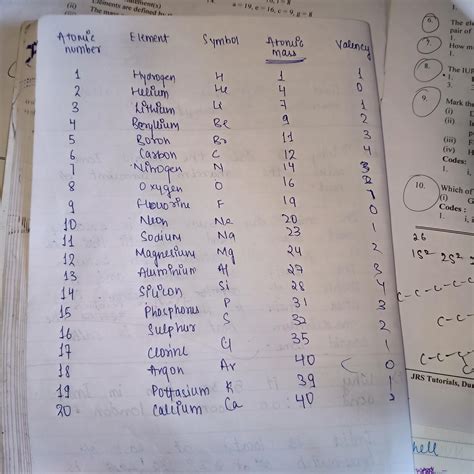 Elements are defined by
(ii)
a = 19, e = 16, c = 9, g = 8
Atomic number Element Symbol Atomic mass Valency
1 Hydrogen H 1 1
2 Helium He 4 0
3 Lithium Li 7 1
4 Beryllium Be 9 2
5 Boron 11 3
6 Carbon C 12 4
7 Nitrogen N 14 3
8 Oxygen O 16 2
9 F 19 1
10 Neon Ne 20 0
11 Sodium Na 23 1
12 Magnesium Mg 24 2
13 Aluminium Al 27 3
14 Silicon Si 28 4
15 Phosphorus P 31 3
16 Sulphur S 32 2
17 Clorine Cl 35 1
18 Argon Ar 40 0
19 Pottasium K 39 1
20 Calcium Ca 40
6. The ele
pair of
1.
7. How
1.
8. The IUP
1.
3.
9. Mark the
(i)
(ii)
(iii)
(iv)
Codes:
1. i,
10. Which of
(i)
Codes:
1. i,
26
1S² 2S²
C-C-C-C
C-C-C
JRS Tutorials,
hell